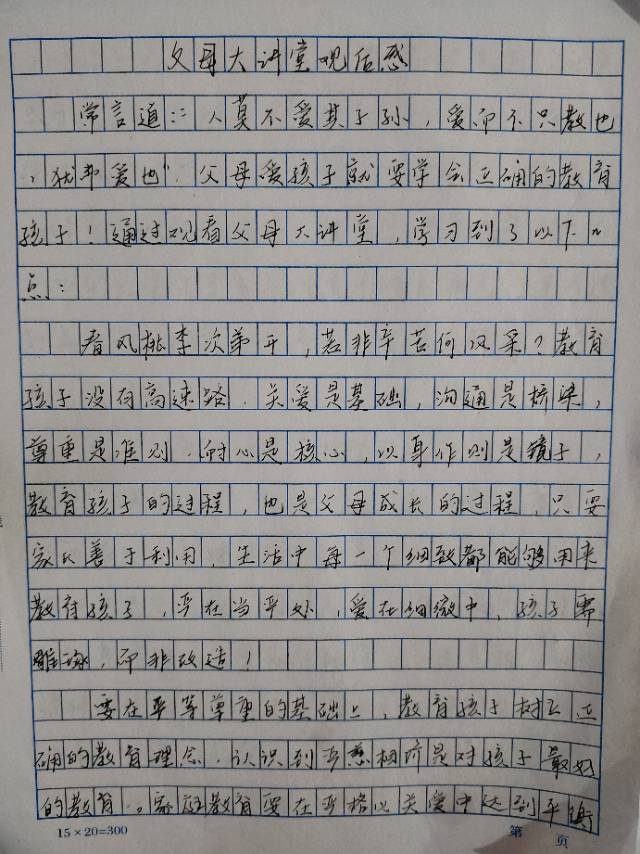 父母大讲堂观后感
常言道:"人莫不爱其子孙,爱而不只教也
,犹弗爱也".父母爱孩子就要学会正确的教育
孩子!通过观看父母大讲堂,学习到了以下几
点:
春风桃李次第开,若非辛苦何风采?教育
孩子没有高速路.关爱是基础,沟通是桥梁,
尊重是准则.耐心是核心,以身作则是镜子,
教育孩子的过程,也是父母成长的过程,只要
家长善于利用,生活中每一个细致都能够用来
教育孩子,严在当严处,爱在细微中,孩子需
雕琢,而非改造!
要在平等尊重的基础上,教育孩子树立正
确的教育理念.认识到严慈相济是对孩子最好
的教育.。家庭教育要在严格以关爱中达到平衡
15×20=300
第 页